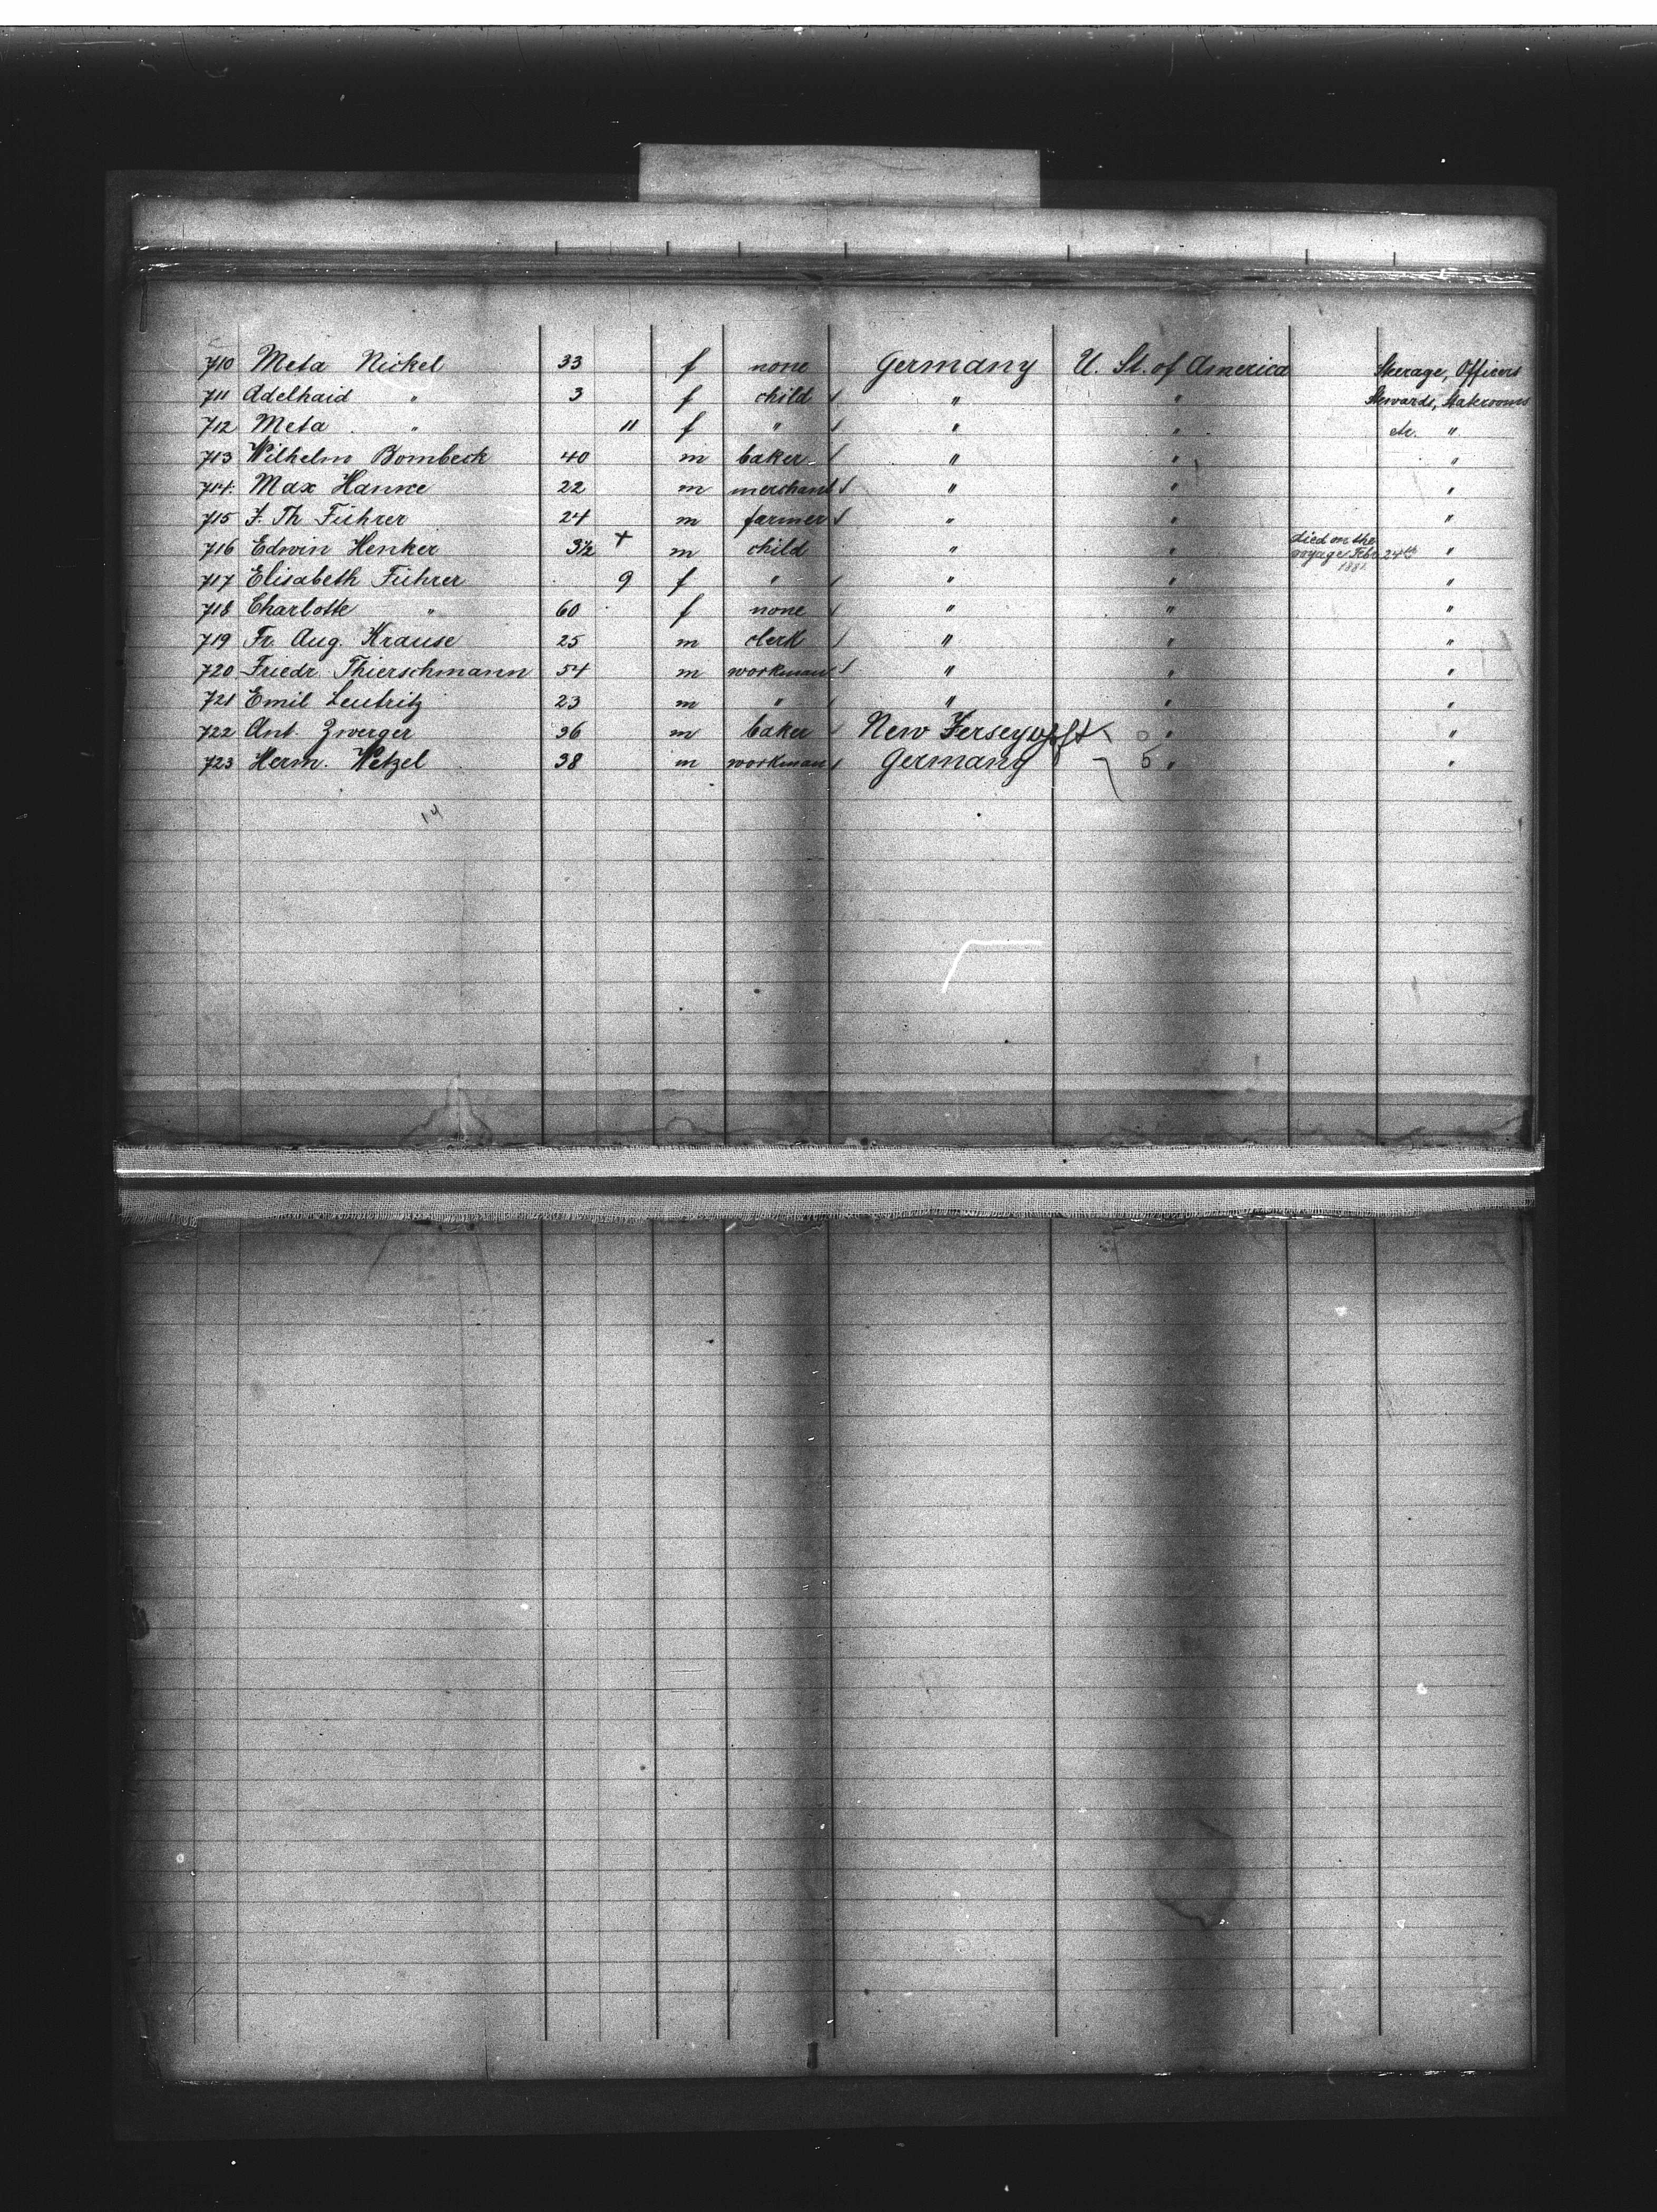 710 Meta Nickel 33 f none Germany U. St. of America Sterage, Officers
711 Adelhaid " 3 f child " " Stewards, Staterooms
712 Meta " 11 f " " " etc. "
713 Wilhelm Bombeck 40 m baker " " "
714. Max Hanne 22 m merchant " " "
715 F. Th Führer 24 m farmer " " "
716 Edwin Henker 3½ + m child " " died on the voyage Febr 24th 1881. "
717 Elisabeth Führer 9 f " " " "
718 Charlotte " 60 f none " " "
719 Fr. Aug. Krause 25 m clerk " " "
720 Friedr. Thierschmann 54 m workman " " "
721 Emil Leutritz 23 m " " " "
722 Ant. Zwerger 36 m baker New Jersey " "
723 Herm. Wetzel 38 m workman Germany 5 " "
14